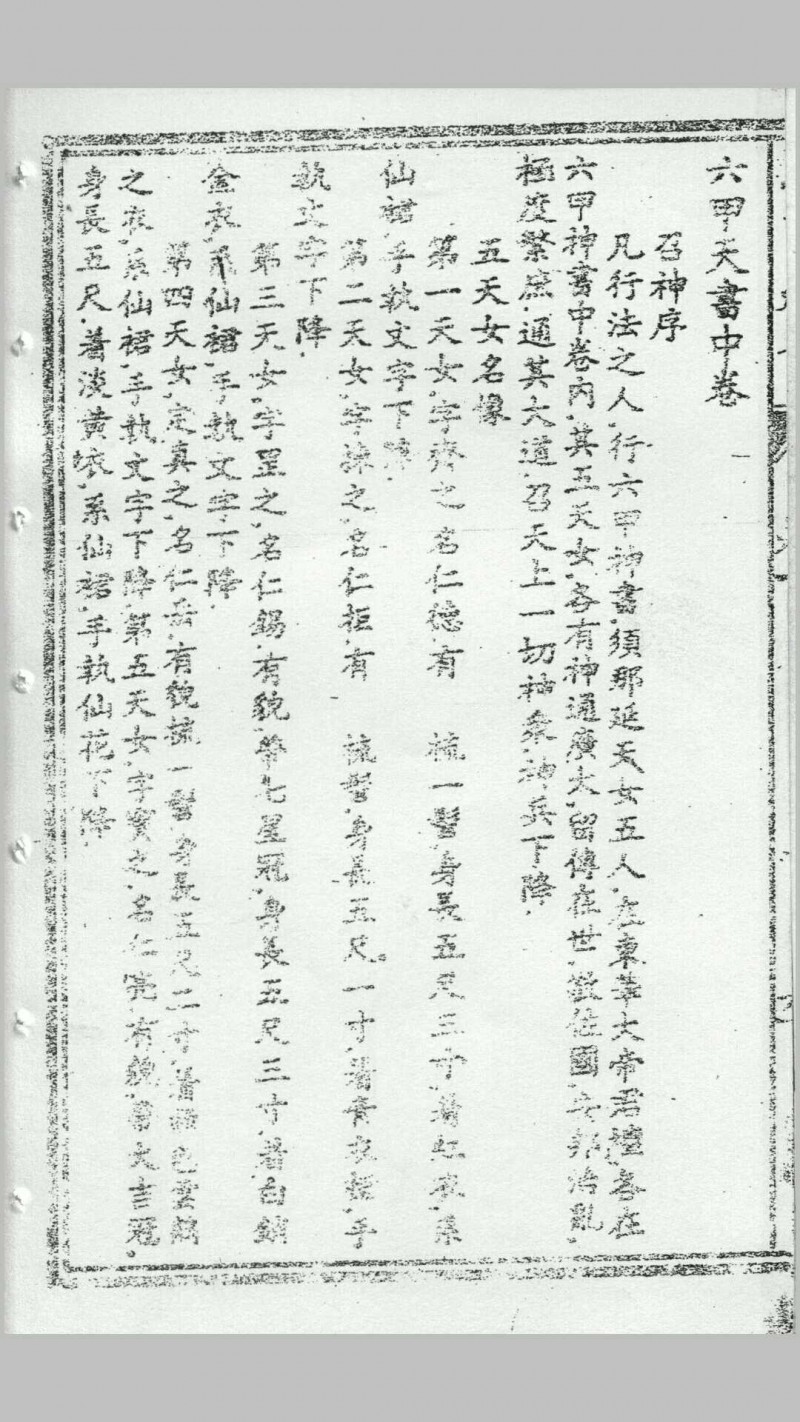 六甲天書中卷
召神序
凡行法之人行六甲神書須那延天女五人在東華大帝君壇各在
六甲神書中卷內其五天女各有神通廣大留傳在世救佐國安邦治亂
極度繁庶通其大道召天上一切神衆神兵下降
五天女名像
第一天女字齊之名仁德有 梳一髻身長五尺三寸著紅衣系
仙裙手執文字下降
第二天女字 之名仁 有 梳髻身長五尺一寸著青衣 手
執文字下降
第三天女字罡之名仁錫有貌帶七星冠身長五尺三寸着白銷
金衣系仙裙手執文字下降
第四天女定真之名仁 有貌梳一髻身長五尺二寸着
之衣系仙裙手執文字下降第五天女字寶之名仁亮有貌帶大吉冠
身長五尺着淡黃衣系仙裙手執仙花下降